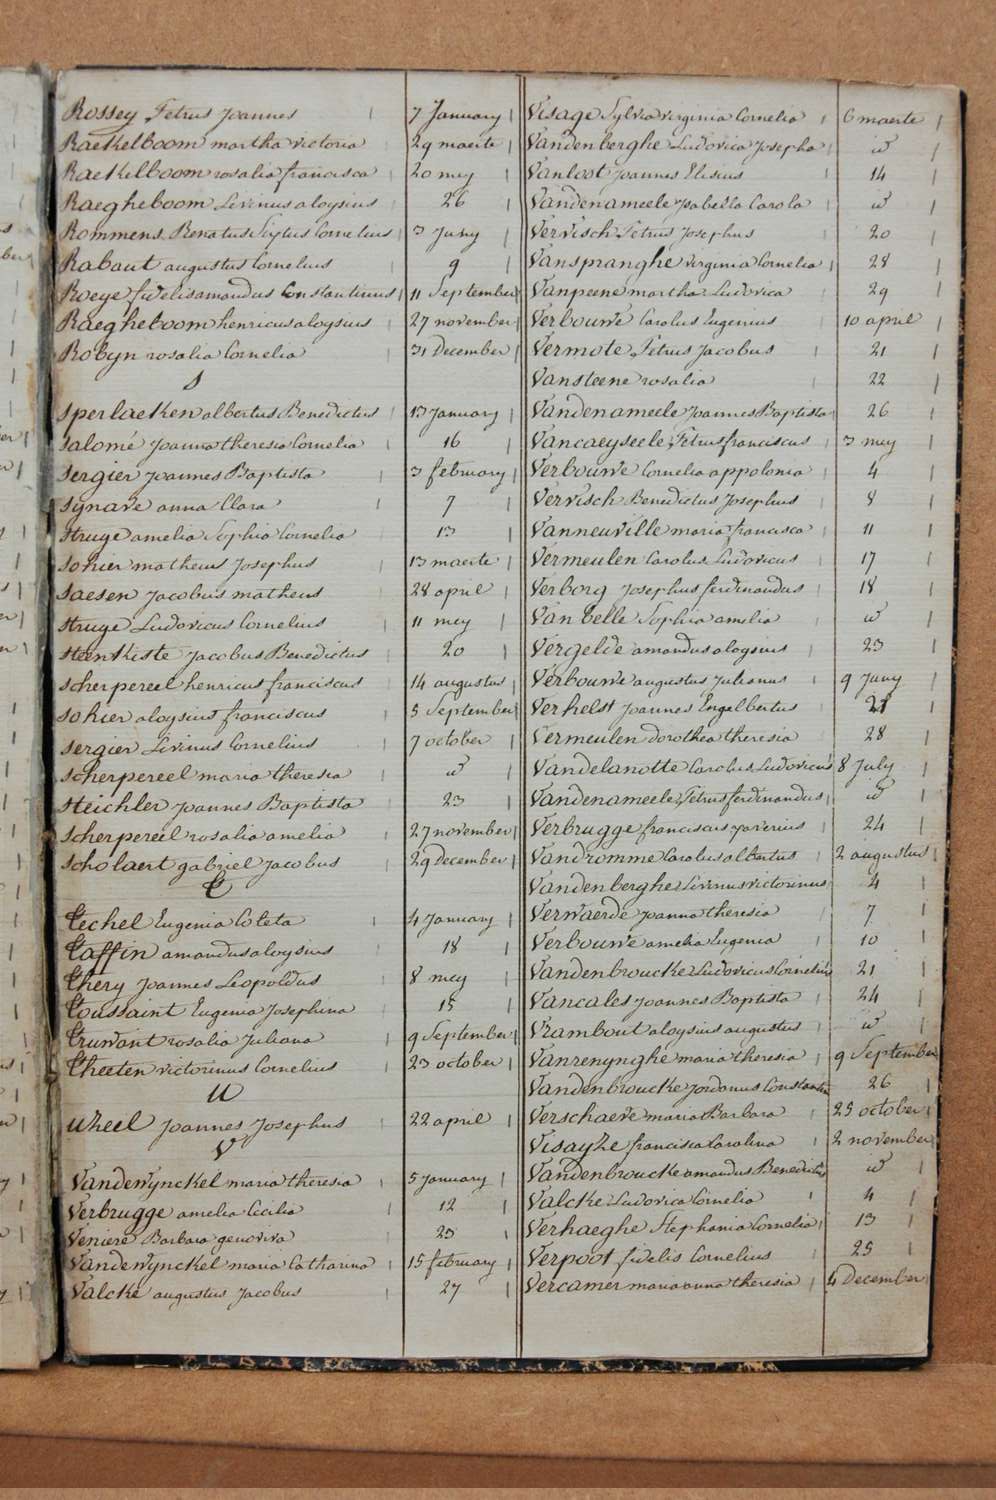 Rossey Petrus Joannes | 7 January |
Raekelboom martha victoria | 29 maerte |
Raekelboom rosalia francisca | 20 mey |
Raegheboom Livinus aloysius | 26 |
Rommens Renatus Sixtus Cornelius | 3 Juny |
Rabaut augustus Cornelius | 9 |
Roeye fidelis amandus Constantinus | 11 September |
Raegheboom henricus aloysius | 27 november |
Robyn rosalia Cornelia | 31 December |
S
Sperlaeken albertus Benedictus | 13 January |
Salomé Joanna theresia Cornelia | 16 |
Sergier Joannes Baptista | 3 february |
Synave anna Clara | 7 |
Struge amelia Sophia Cornelia | 13 |
Sohier matheus Josephus | 13 maerte |
Saesen Jacobus matheus | 28 april |
Struge Ludovicus Cornelius | 11 mey |
Steenkiste Jacobus Benedictus | 20 |
Scherpereel henricus franciscus | 14 augustus |
Sohier aloysius franciscus | 5 September |
Sergier Livinus Cornelius | 7 october |
Scherpereel maria theresia | id |
Steichler Joannes Baptista | 23 |
Scherpereel rosalia amelia | 27 november |
Scholaert gabriel Jacobus | 29 December |
T
Techel Eugenia Coleta | 4 January |
Taffin amandus aloysius | 18 |
Thery Joannes Leopoldus | 8 mey |
Toussaint Eugenia Josephina | 15 |
Truwant rosalia Juliana | 9 September |
Theeten victorinus Cornelius | 23 october |
U
Uzeel Joannes Josephus | 22 april |
V
Vandewynckel maria theresia | 5 January |
Verbrugge amelia Cicilia | 12 |
Veniere Barbara genoviva | 23 |
Vandewynckel maria Catharina | 15 february |
Valcke augustus Jacobus | 27 |
Visage Sylvia virginia Cornelia | 6 maerte |
Vandenberghe Ludovica Josepha | id |
Vanloot Joannes Elisius | 14 |
Vandenameele Isabella Carola | id |
Vervisch Petrus Josephus | 20 |
Vanspranghe virginia Cornelia | 28 |
Vanpeene martha Ludovica | 29 |
Verbouwe Carolus Eugenius | 10 april |
Vermote Petrus Jacobus | 21 |
Vansteene rosalia | 22 |
Vandenameele Joannes Baptista | 26 |
Vancaeyseele Petrus franciscus | 3 mey |
Verbouwe Cornelia appolonia | 4 |
Vervisch Benedictus Josephus | 8 |
Vanneuville maria francisca | 11 |
Vermeulen Carolus Ludovicus | 17 |
Verborg Josephus ferdinandus | 18 |
Van belle Sophia amelia | id |
Vergelde amandus aloysius | 23 |
Verbouwe augustus Julianus | 9 Juny |
Verhelst Joannes Engelbertus |
Vermeulen dorothea theresia | 28 |
Vandelanotte Carolus Ludovicus | 8 July |
Vandenameele Petrus ferdinandus | id |
Verbrugge franciscus Xaverius | 24 |
Vandromme Carolus albertus | 2 augustus |
Vandenberghe Livinus victorinus | 4 |
Verwaerde Joanna theresia | 7 |
Verbouwe amelia Eugenia | 10 |
Vandenbroucke Ludovicus Cornelius | 21 |
Vancales Joannes Baptista | 24 |
Vrambout aloysius augustus | id |
Vanrenynghe maria theresia | 9 September |
Vandenbroucke Jordanus Constantin | 26
Verschaeve maria Barbara | 25 october |
Visayze francisca Carolina | 2 november |
Vandenbroucke amandus Benedictus | id |
Valcke Ludovica Cornelia | 4 |
Verhaeghe Stephania Cornelia | 13 |
Verpoot fidelis Cornelius | 25 |
Vercamer maria anna theresia | 4 December |